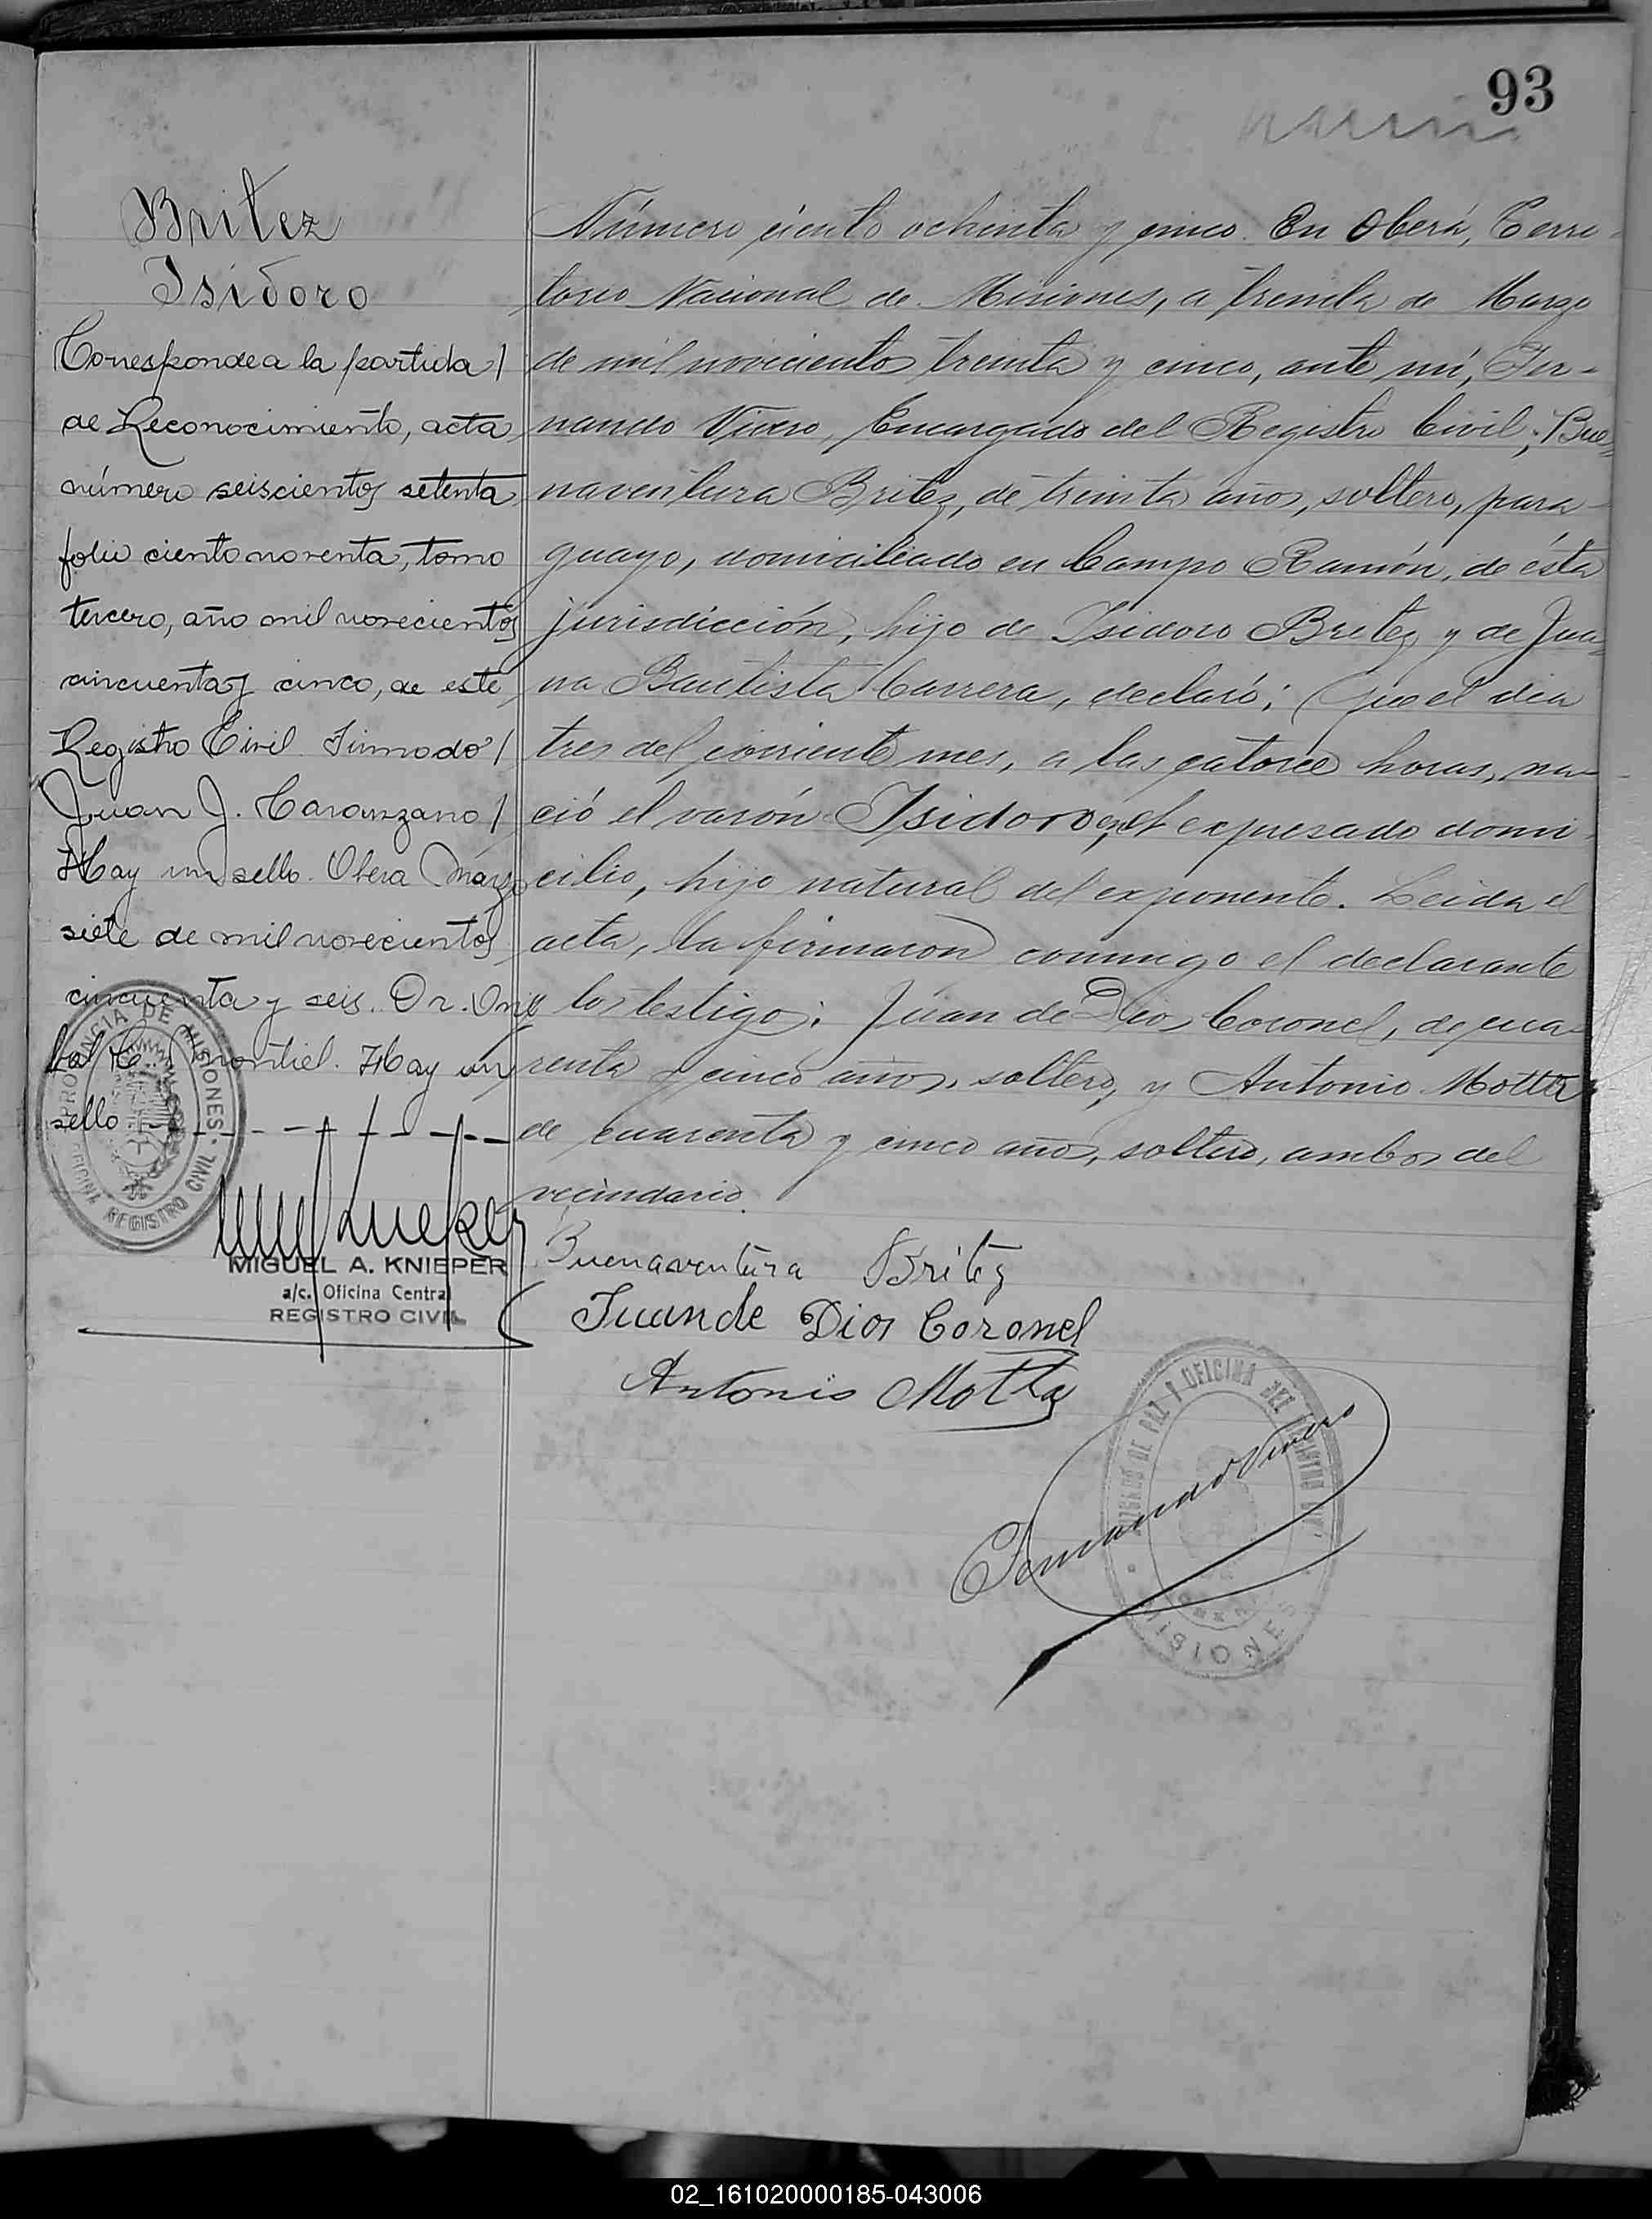 93
Britez
Isidoro
Corresponde a la partida/
de Reconocimiento, acta
número seiscientos setenta
folio ciento noventa, tomo
tercero, año mil novecientos
cincuenta y cinco, de este
Registro Civil Firmado/
Juan J. Caranzano/
Hay un sello. Oberá Marzo
siete de mil novecientos
cincuenta y seis. Dr.
Montiel. Hay un
sello
PROVINCIA DE MISIONES
OFICINA REGISTRO CIVIL
MIGUEL A. KNIEPER
a/c. Oficina Central
REGISTRO CIVIL
Número ciento ochenta y cinco. En Oberá, Terri-
torio Nacional de Misiones, a treinta de Marzo
de mil noveciento treinta y cinco, ante mí, Fer-
nando Vivero, Encargado del Registro Civil; Bue-
naventura Britez, de treinta años, soltero, para-
guayo, domiciliado en Campo Ramón, de ésta
jurisdicción, hijo de Isidoro Britez y de Jua-
na Bautista Carrera, declaró: Que el día
tres del corriente mes, a las catorce horas, na-
ció el varón Isidoro, en el expresado domi-
cilio, hijo natural del exponente. Leida el
acta, la firmaron conmigo el declarante
y los testigos: Juan de Dios Coronel, de cua-
renta y cinco años, soltero, y Antonio Motta
de cuarenta y cinco años, soltero, ambos del
vecindario.
Buenaventura Britez
Juan de Dios Coronel
Antonio Motta
Fernando Vivero
JUZGADO DE PAZ Y OFICINA DEL REGISTRO CIVIL
OBERA
MISIONES
02_161020000185-043006